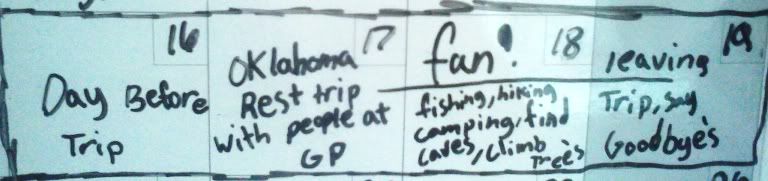 16
Day Before
Trip
17
Oklahoma
Rest trip
with people at
GP
18
fun!
fishing, hiking
camping, find
caves, climb
Trees
19
leaving
Trip, say
Goodbye's